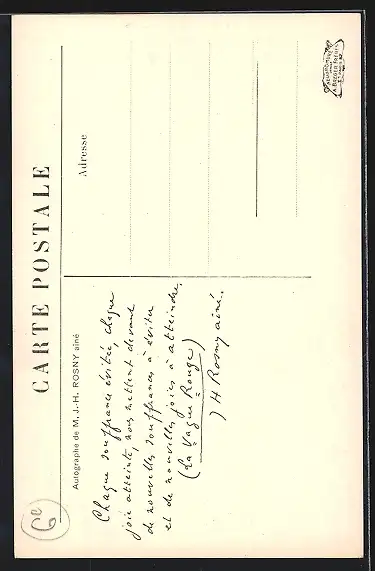 CARTE POSTALE
Autographe de M. J.-H. ROSNY aîné
Adresse
Chaque souffrance évitée, chaque
joie atteinte, nous mettent devant
de nouvelles souffrances à éviter
et de nouvelles joies à atteindre.
(La Vague Rouge)
J H Rosny aîné.
6e